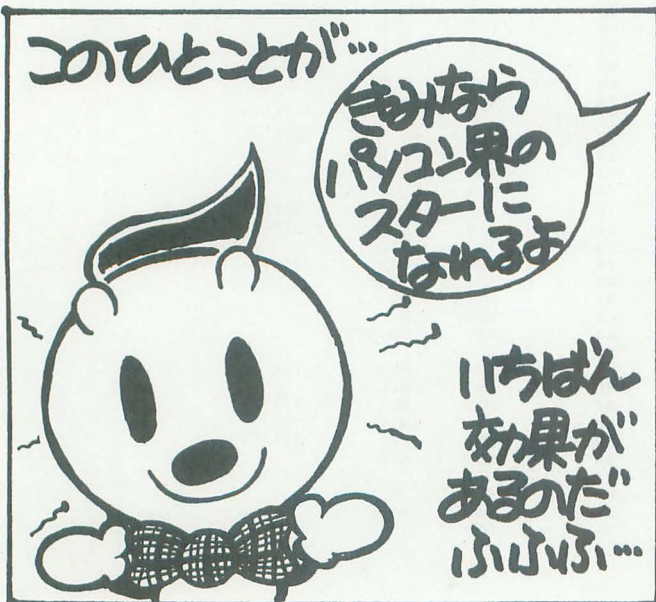 このひとことが…
きみなら
パソコン界の
スターに
なれるよ
いちばん
効果が
あるのだ
ふふふ…